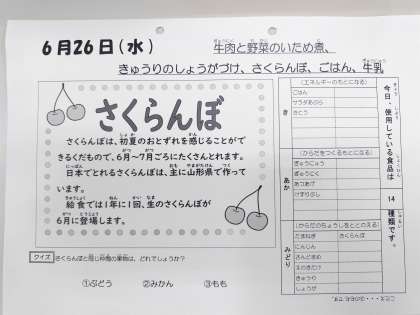 6月26日(水)
牛肉と野菜のいため煮、
きゅうりのしょうがづけ、さくらんぼ、ごはん、牛乳
さくらんぼ
さくらんぼは、初夏のおとずれを感じることがで
きるくだもので、6月~7月ごろにたくさんとれます。
日本でとれるさくらんぼは、主に山形県で作って
います。
給食では1年に1回、生のさくらんぼが
6月に登場します。
クイズ さくらんぼと同じ仲間の果物は、どれでしょうか?
①ぶどう ②みかん ③もも
今日、使用している食品は 14 種類です。
き
(エネルギーのもとになる)
ごはん
サラダあぶら
さとう
あか
(からだをつくるもとになる)
ぎゅうにゅう
ぎゅうにく
あつあげ
みどり
(からだのちょうしをととのえる)
たまねぎ さくらんぼ
にんじん
さんどまめ
えのきだけ
きゅうり
しょうが